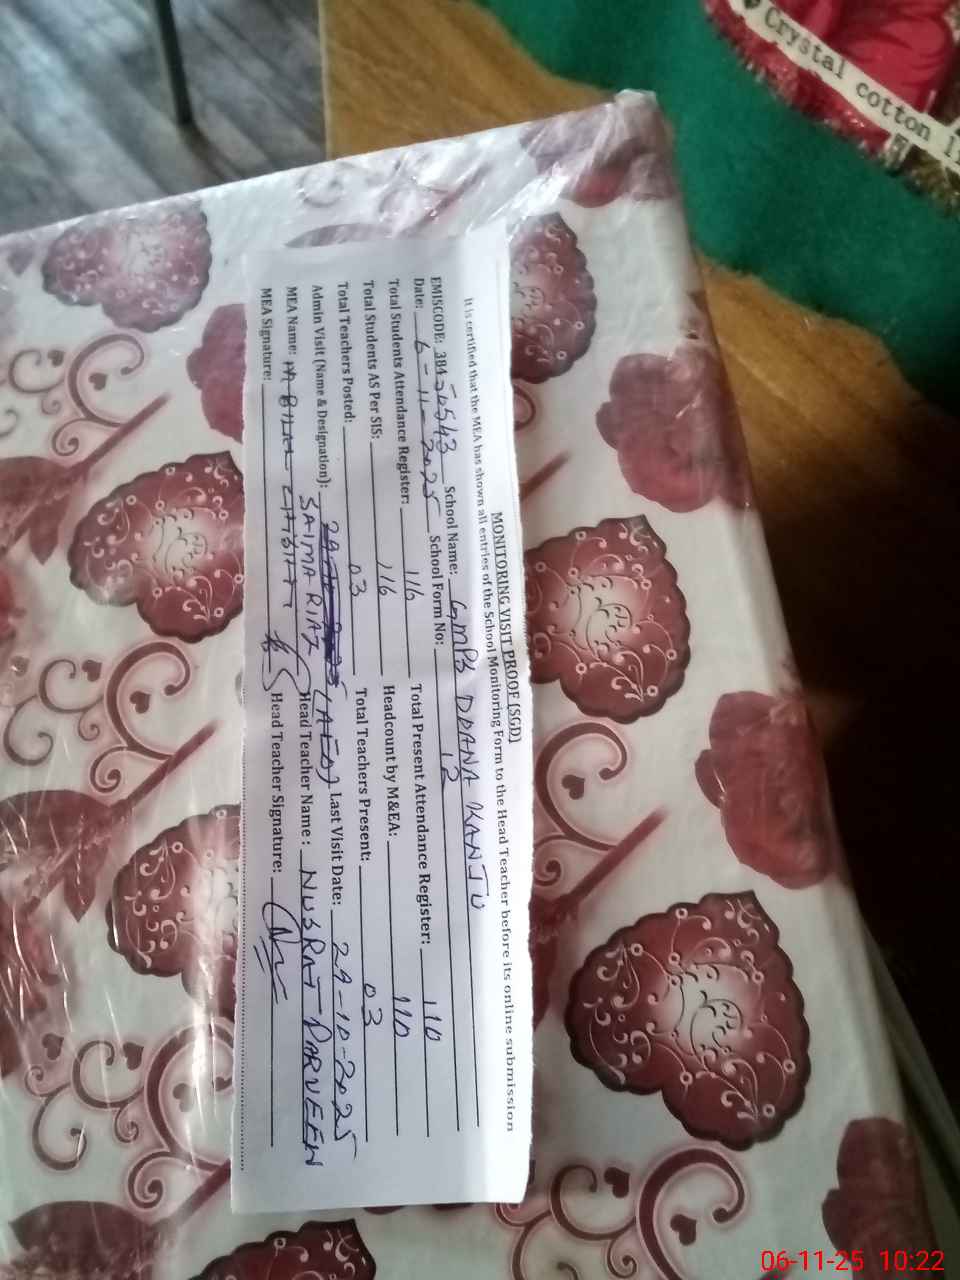 MONITORING VISIT PROOF (SGD)
It is certified that the MEA has shown all entries of the School Monitoring Form to the Head Teacher before its online submission
EMISCODE: 38450543 School Name: GMPS DRANA KANJU
Date: 6-11-2025 School Form No: 12
Total Students Attendance Register: 116 Total Present Attendance Register: 110
Total Students AS Per SIS: 116 Headcount by M&EA: 110
Total Teachers Posted: 03 Total Teachers Present: 03
Admin Visit (Name & Designation): SAIMA RIAZ (AEO) Last Visit Date: 29-10-2025
MEA Name: Head Teacher Name: NUSRAT PARVEEN
MEA Signature: Head Teacher Signature:
Crystal cotton
06-11-25 10:22